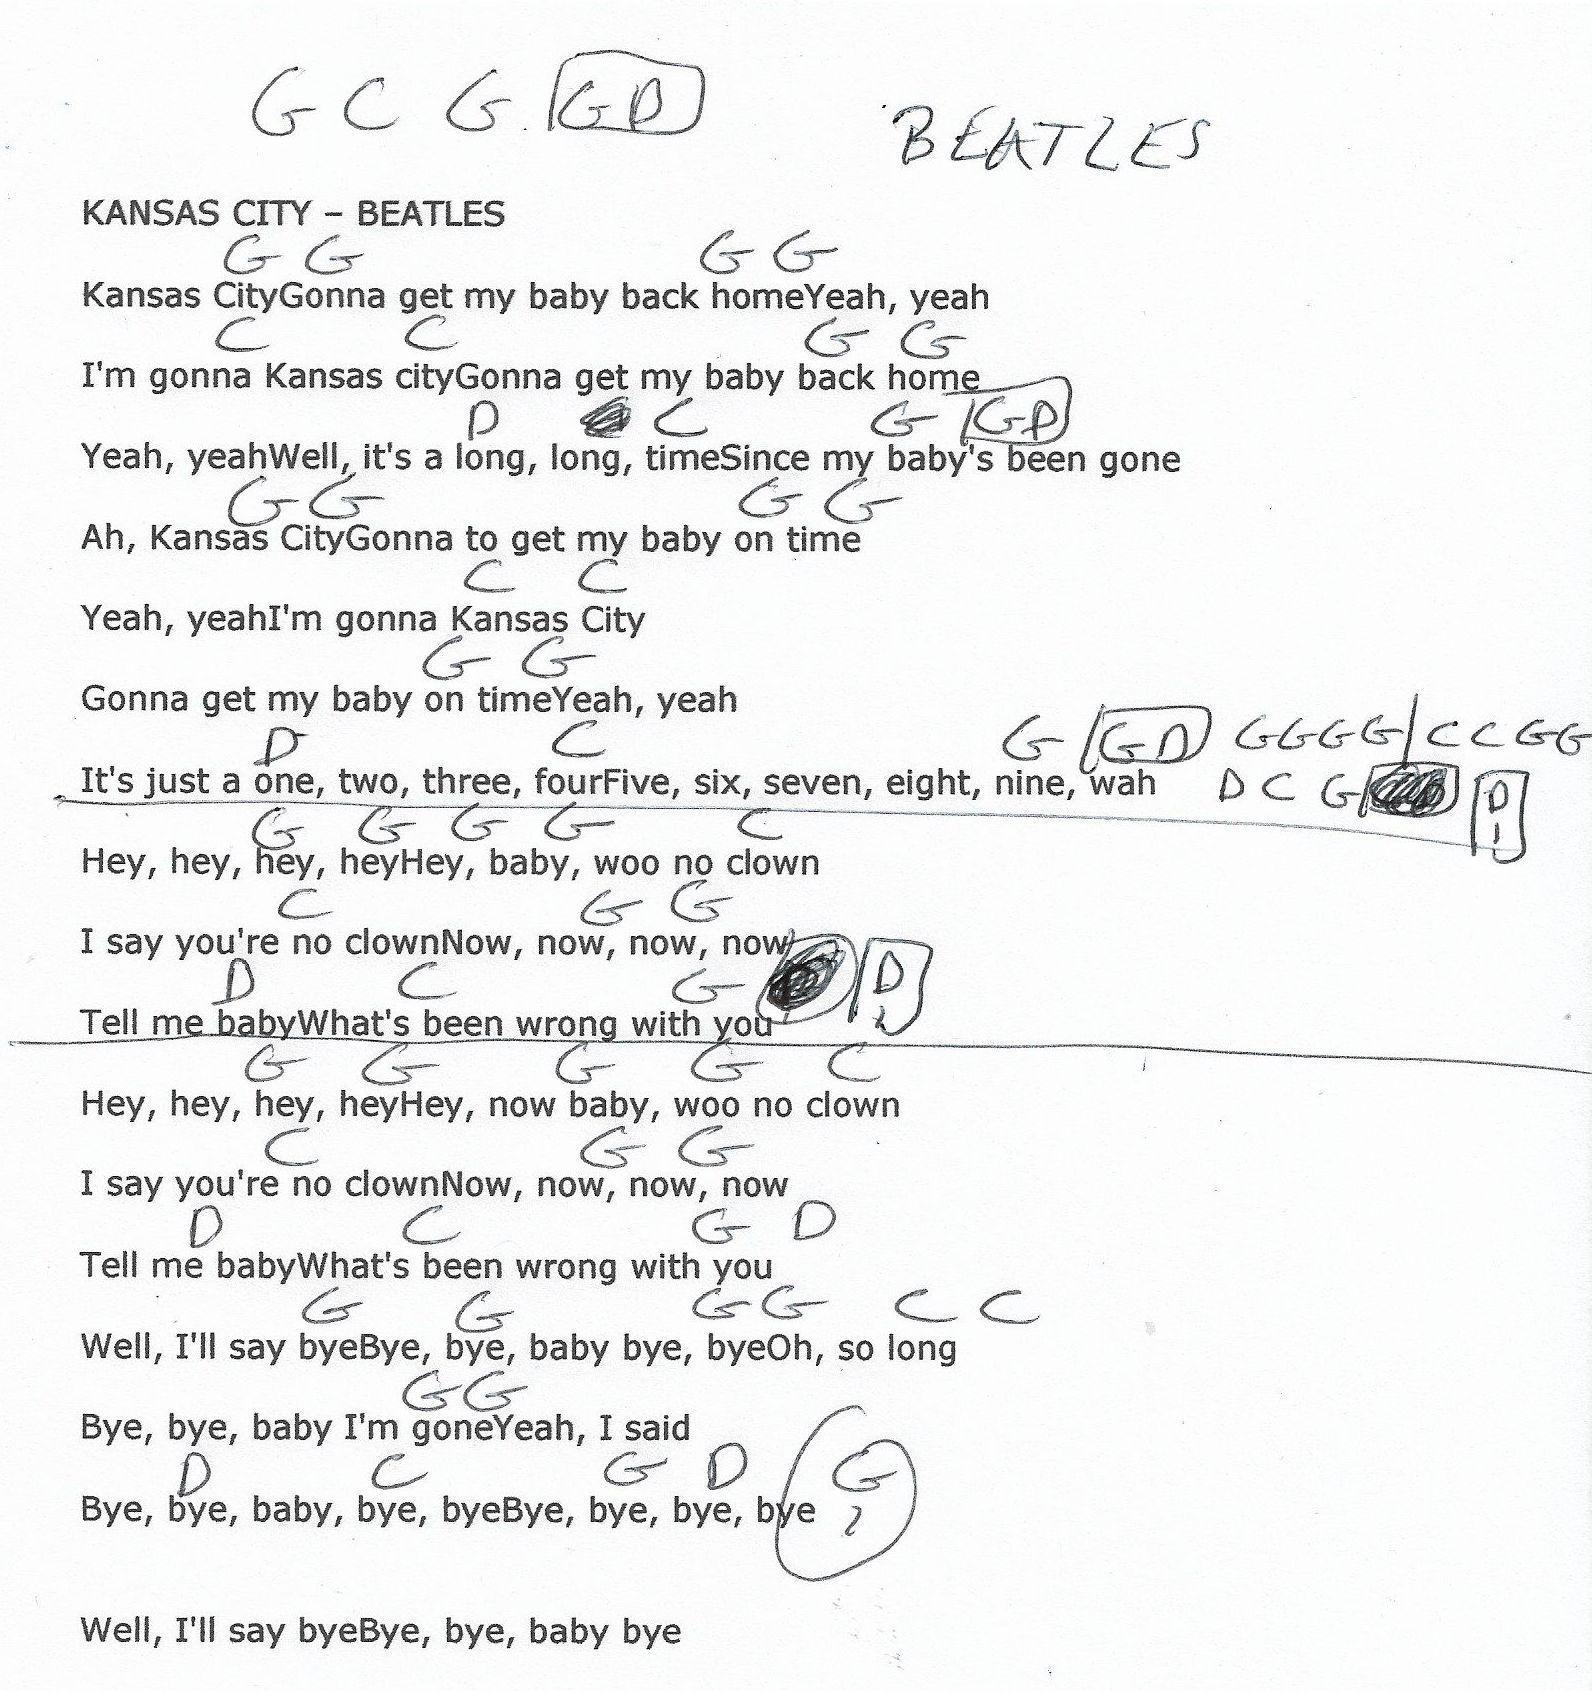 G C G G D
BEATLES
KANSAS CITY – BEATLES
G G G G
Kansas CityGonna get my baby back homeYeah, yeah
C C G G
I'm gonna Kansas cityGonna get my baby back home
D C G G D
Yeah, yeahWell, it's a long, long, timeSince my baby's been gone
G G G G
Ah, Kansas CityGonna to get my baby on time
C C
Yeah, yeahI'm gonna Kansas City
G G
Gonna get my baby on timeYeah, yeah
D C G G D G G G G | C C G G
It's just a one, two, three, fourFive, six, seven, eight, nine, wah D C G D
G G G G C
Hey, hey, hey, heyHey, baby, woo no clown
C G G
I say you're no clownNow, now, now, now
D C G D
Tell me babyWhat's been wrong with you
G G G G C
Hey, hey, hey, heyHey, now baby, woo no clown
C G G
I say you're no clownNow, now, now, now
D C G D
Tell me babyWhat's been wrong with you
G G G G C C
Well, I'll say byeBye, bye, baby bye, byeOh, so long
G G
Bye, bye, baby I'm goneYeah, I said
D C G D G
Bye, bye, baby, bye, byeBye, bye, bye, bye
Well, I'll say byeBye, bye, baby bye